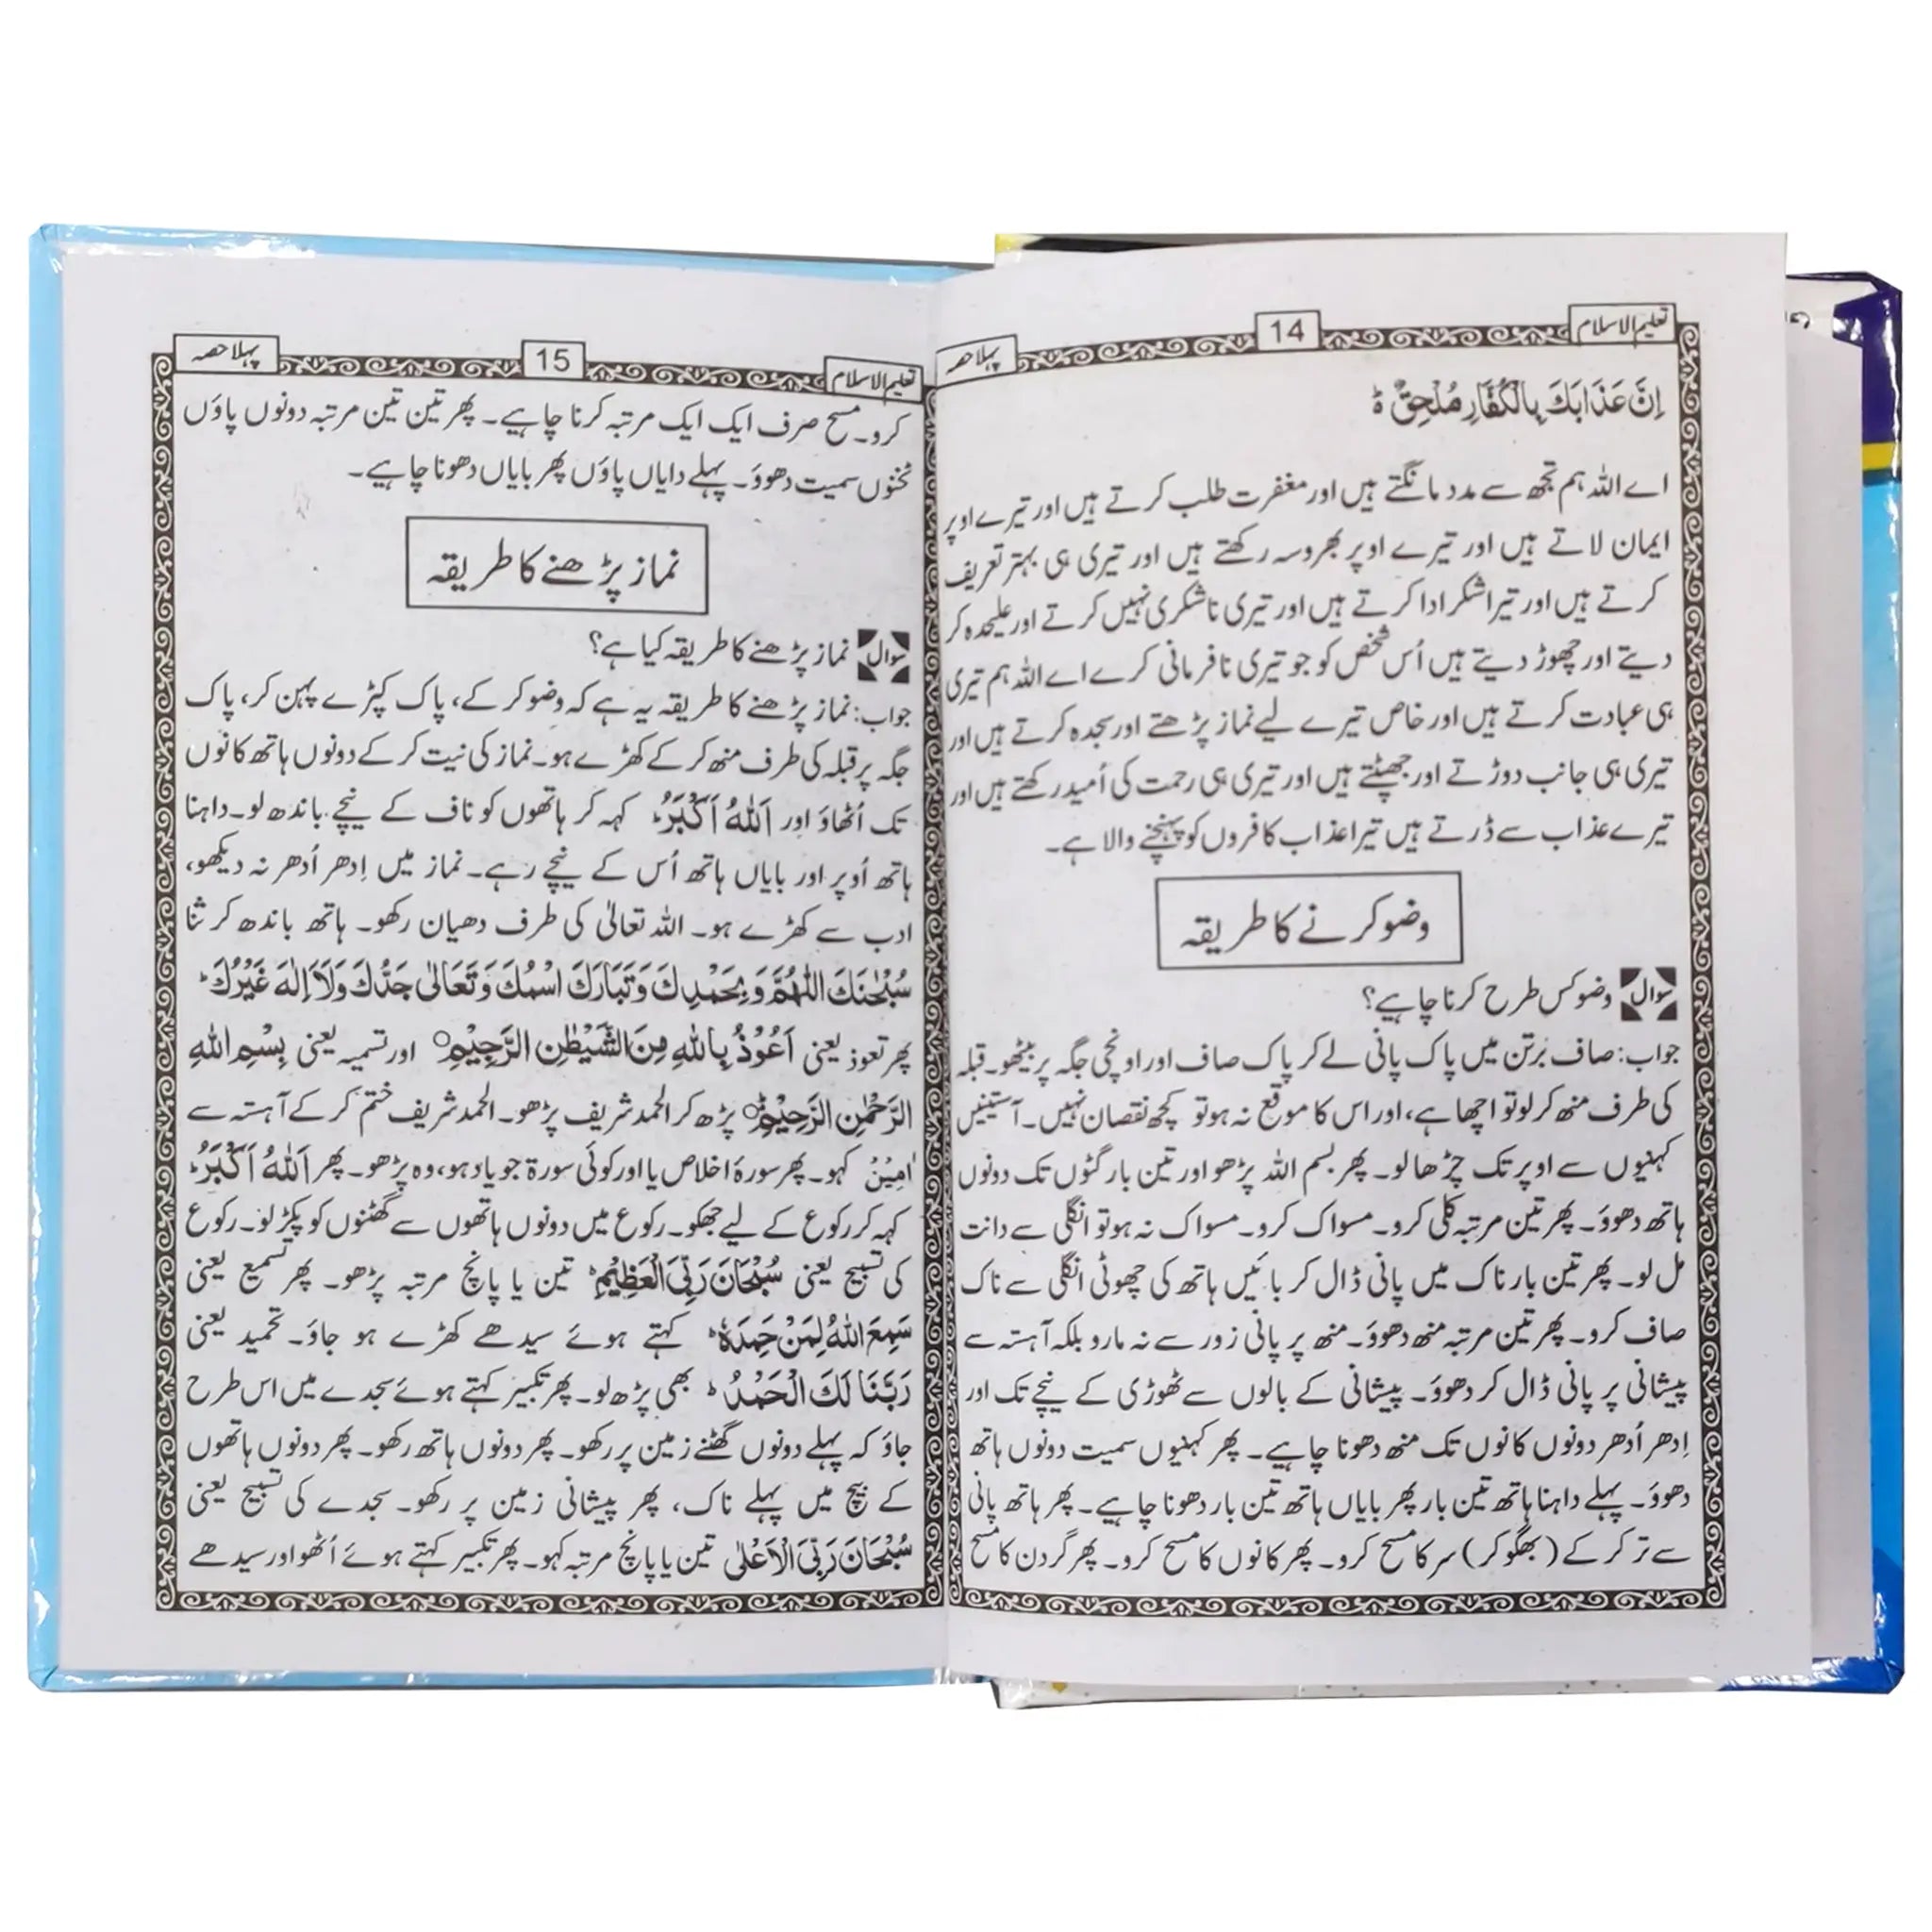 تعلیم الاسلام
14
پہلا حصہ
اِنَّ عَذَابَكَ بِالْكُفَّارِ مُلْحِقٌ ؕ
اے اللہ ہم تجھ سے مدد مانگتے ہیں اور مغفرت طلب کرتے ہیں اور تیرے اوپر
ایمان لاتے ہیں اور تیرے اوپر بھروسہ رکھتے ہیں اور تیری ہی بہتر تعریف
کرتے ہیں اور تیرا شکر ادا کرتے ہیں اور تیری ناشکری نہیں کرتے اور علیحدہ کر
دیتے اور چھوڑ دیتے ہیں اُس شخص کو جو تیری نافرمانی کرے اے اللہ ہم تیری
ہی عبادت کرتے ہیں اور خاص تیرے لیے نماز پڑھتے اور سجدہ کرتے ہیں اور
تیری ہی جانب دوڑتے اور جھپٹتے ہیں اور تیری ہی رحمت کی اُمید رکھتے ہیں اور
تیرے عذاب سے ڈرتے ہیں تیرا عذاب کافروں کو پہنچنے والا ہے۔
وضو کرنے کا طریقہ
سوال وضو کس طرح کرنا چاہیے؟
جواب: صاف برتن میں پاک پانی لے کر پاک صاف اور اونچی جگہ پر بیٹھو۔ قبلہ
کی طرف منھ کر لو تو اچھا ہے، اور اس کا موقع نہ ہو تو کچھ نقصان نہیں۔ آستینیں
کہنیوں سے اوپر تک چڑھا لو۔ پھر بسم اللہ پڑھو اور تین بار گٹوں تک دونوں
ہاتھ دھوؤ۔ پھر تین مرتبہ کلی کرو۔ مسواک کرو۔ مسواک نہ ہو تو انگلی سے دانت
مل لو۔ پھر تین بار ناک میں پانی ڈال کر بائیں ہاتھ کی چھوٹی انگلی سے ناک
صاف کرو۔ پھر تین مرتبہ منھ دھوؤ۔ منھ پر پانی زور سے نہ مارو بلکہ آہستہ سے
پیشانی پر پانی ڈال کر دھوؤ۔ پیشانی کے بالوں سے ٹھوڑی کے نیچے تک اور
اِدھر اُدھر دونوں کانوں تک منھ دھونا چاہیے۔ پھر کہنیوں سمیت دونوں ہاتھ
دھوؤ۔ پہلے داہنا ہاتھ تین بار پھر بایاں ہاتھ تین بار دھونا چاہیے۔ پھر ہاتھ پانی
سے تر کر کے (بھگو کر) سر کا مسح کرو۔ پھر کانوں کا مسح کرو۔ پھر گردن کا مسح
تعلیم الاسلام
15
پہلا حصہ
کرو۔ مسح صرف ایک ایک مرتبہ کرنا چاہیے۔ پھر تین تین مرتبہ دونوں پاؤں
ٹخنوں سمیت دھوؤ۔ پہلے دایاں پاؤں پھر بایاں دھونا چاہیے۔
نماز پڑھنے کا طریقہ
سوال نماز پڑھنے کا طریقہ کیا ہے؟
جواب: نماز پڑھنے کا طریقہ یہ ہے کہ وضو کر کے، پاک کپڑے پہن کر، پاک
جگہ پر قبلہ کی طرف منھ کر کے کھڑے ہو۔ نماز کی نیت کر کے دونوں ہاتھ کانوں
تک اُٹھاؤ اور اَللّٰهُ اَكْبَرُ ؕ کہہ کر ہاتھوں کو ناف کے نیچے باندھ لو۔ داہنا
ہاتھ اُوپر اور بایاں ہاتھ اُس کے نیچے رہے۔ نماز میں اِدھر اُدھر نہ دیکھو،
ادب سے کھڑے ہو۔ اللہ تعالیٰ کی طرف دھیان رکھو۔ ہاتھ باندھ کر ثنا
سُبْحٰنَكَ اللّٰهُمَّ وَ بِحَمْدِكَ وَ تَبَارَكَ اسْمُكَ وَ تَعَالٰى جَدُّكَ وَ لَآ اِلٰهَ غَيْرُكَ ؕ
پھر تعوذ یعنی اَعُوْذُ بِاللّٰهِ مِنَ الشَّيْطٰنِ الرَّجِيْمِ ○ اور تسمیہ یعنی بِسْمِ اللّٰهِ
الرَّحْمٰنِ الرَّحِيْمِ ○ پڑھ کر الحمد شریف پڑھو۔ الحمد شریف ختم کر کے آہستہ سے
اٰمِيْنْ کہو۔ پھر سورۂ اخلاص یا اور کوئی سورۃ جو یاد ہو، وہ پڑھو۔ پھر اَللّٰهُ اَكْبَرُ ؕ
کہہ کر رکوع کے لیے جھکو۔ رکوع میں دونوں ہاتھوں سے گھٹنوں کو پکڑ لو۔ رکوع
کی تسبیح یعنی سُبْحَانَ رَبِّيَ الْعَظِيْمِ ؕ تین یا پانچ مرتبہ پڑھو۔ پھر تسمیع یعنی
سَمِعَ اللّٰهُ لِمَنْ حَمِدَهٗ ؕ کہتے ہوئے سیدھے کھڑے ہو جاؤ۔ تحمید یعنی
رَبَّنَا لَكَ الْحَمْدُ ؕ بھی پڑھ لو۔ پھر تکبیر کہتے ہوئے سجدے میں اس طرح
جاؤ کہ پہلے دونوں گھٹنے زمین پر رکھو۔ پھر دونوں ہاتھ رکھو۔ پھر دونوں ہاتھوں
کے بیچ میں پہلے ناک، پھر پیشانی زمین پر رکھو۔ سجدے کی تسبیح یعنی
سُبْحَانَ رَبِّيَ الْاَعْلٰى تین یا پانچ مرتبہ کہو۔ پھر تکبیر کہتے ہوئے اُٹھو اور سیدھے